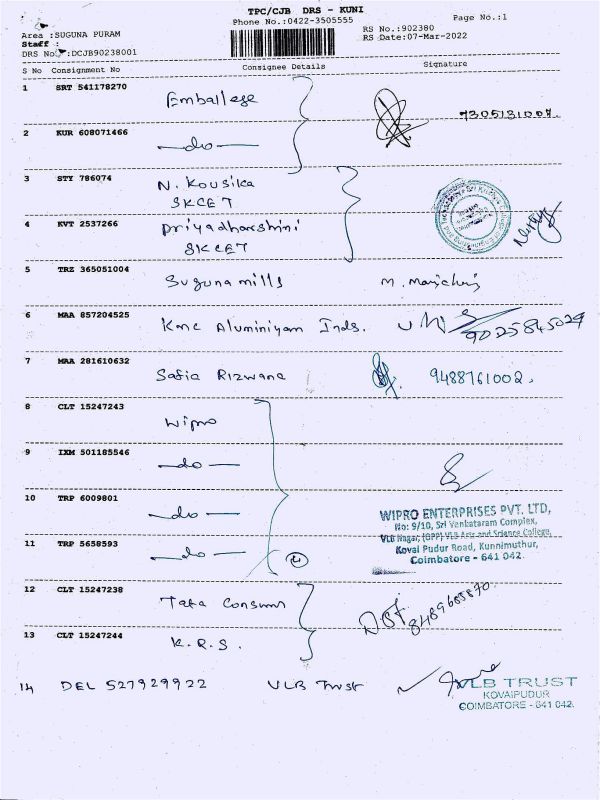 TPC/CJB DRS - KUNI
Phone No.:0422-3505555
Page No.:1
Area :SUGUNA PURAM
RS No.:902380
Staff :
RS Date:07-Mar-2022
DRS No :DCJB90238001
S No Consignment No Consignee Details Signature
1 SRT 541178270 Emballege
7305131007.
2 KUR 608071466 -do-
3 STY 786074 N. Kousika
SKCET
4 KVT 2537266 Priyadharshini
SKCET
5 TRZ 365051004 Suguna mills M.
6 MAA 857204525 Kmc Aluminiyam Inds. 9025845029
7 MAA 281610632 Safia Rizwana 9488761002.
8 CLT 15247243 Wipro
9 IXM 501185546 -do-
10 TRP 6009801 -do-
WIPRO ENTERPRISES PVT. LTD,
No: 9/10, Sri Venkataram Complex,
VLB Nagar, (OPP) VLB Arts and Science College,
11 TRP 5658593 -do- 4
Kovai Pudur Road, Kunnimuthur,
Coimbatore - 641 042.
12 CLT 15247238 Tata Consum
8489685870
13 CLT 15247244 K.R.S.
14 DEL 527929922 VLB Trust
VLB TRUST
KOVAIPUDUR
COIMBATORE - 641 042.